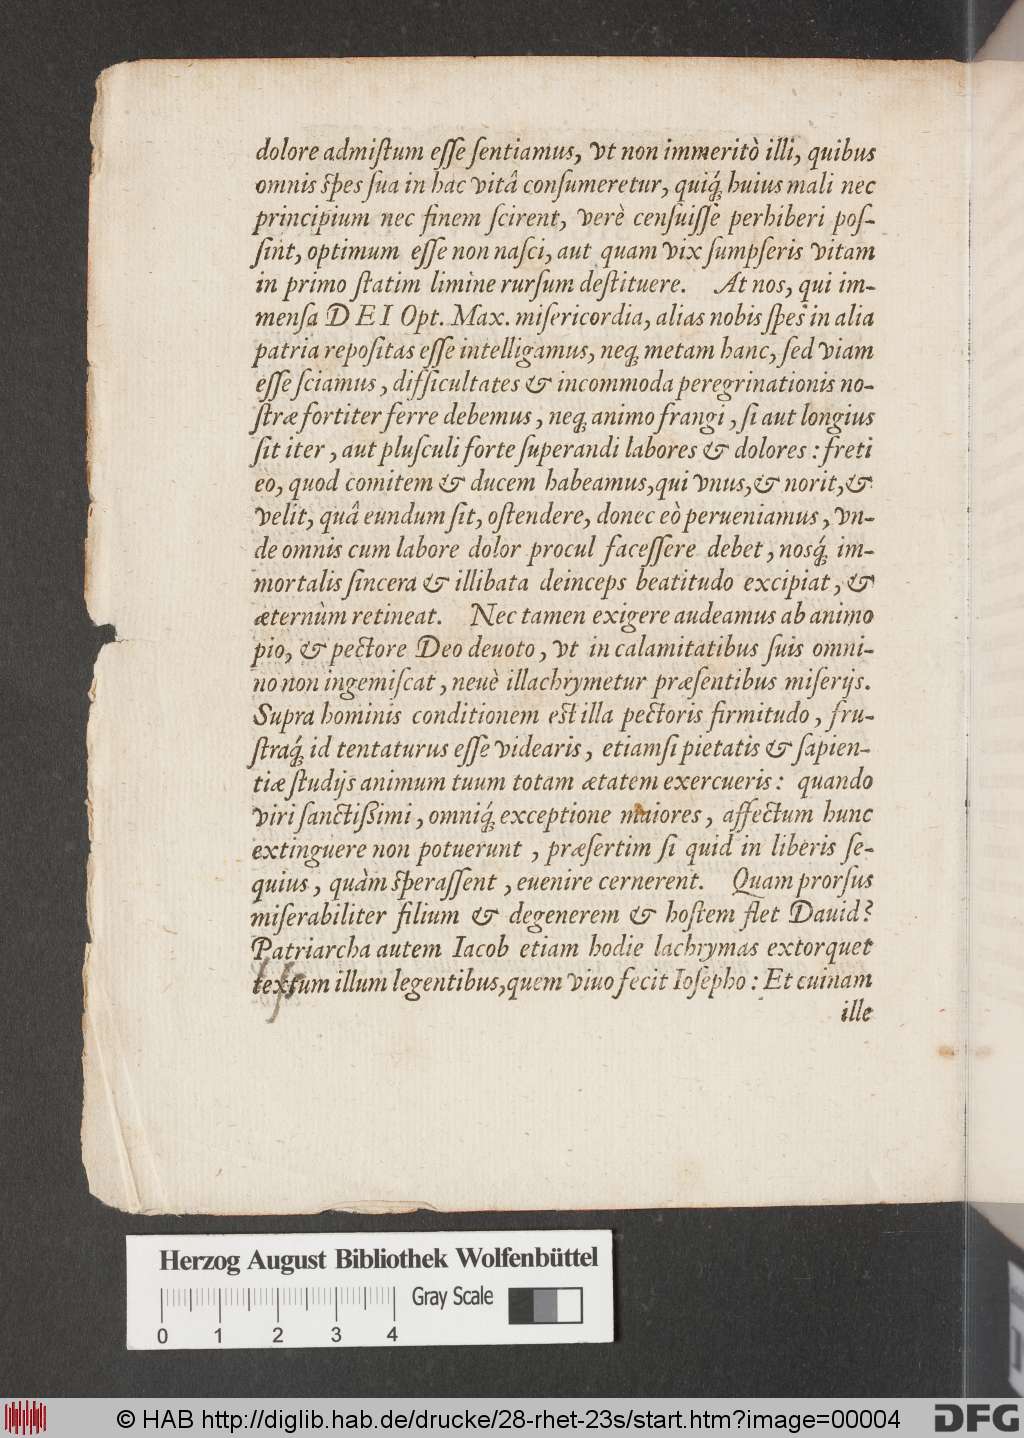 dolore admiſtum eſſe ſentiamus, vt non immeritò illi, quibus
omnis ſpes ſua in hac vitâ conſumeretur, quiq́; huius mali nec
principium nec finem ſcirent, verè cenſuiſſe perhiberi poſ-
ſint, optimum eſſe non naſci, aut quam vix ſumpſeris vitam
in primo ſtatim limine rurſum deſtituere. At nos, qui im-
menſa DEI Opt. Max. miſericordia, alias nobis ſpes in alia
patria repoſitas eſſe intelligamus, neq; metam hanc, ſed viam
eſſe ſciamus, difficultates & incommoda peregrinationis no-
ſtræ fortiter ferre debemus, neq; animo frangi, ſi aut longius
ſit iter, aut pluſculi forte ſuperandi labores & dolores: freti
eò, quod comitem & ducem habeamus, qui vnus, & norit, &
velit, quâ eundum ſit, oſtendere, donec eò perueniamus, vn-
de omnis cum labore dolor procul faceſſere debet, nosq́; im-
mortalis ſincera & illibata deinceps beatitudo excipiat, &
æternùm retineat. Nec tamen exigere audeamus ab animo
pio, & pectore Deo deuoto, vt in calamitatibus ſuis omni-
no non ingemiſcat, neuè illachrymetur præſentibus miſerijs.
Supra hominis conditionem eſt illa pectoris firmitudo, fru-
ſtraq́; id tentaturus eſſe videaris, etiamſi pietatis & ſapien-
tiæ ſtudijs animum tuum totam ætatem exercueris: quando
viri ſanctißimi, omniq́; exceptione maiores, affectum hunc
extinguere non potuerunt, præſertim ſi quid in liberis ſe-
quius, quàm ſperaſſent, euenire cernerent. Quam prorſus
miſerabiliter filium & degenerem & hoſtem flet Dauid?
Patriarcha autem Iacob etiam hodie lachrymas extorquet
textum illum legentibus, quem viuo fecit Ioſepho: Et cuinam
ille
Herzog August Bibliothek Wolfenbüttel
Gray Scale
0 1 2 3 4
© HAB http://diglib.hab.de/drucke/28-rhet-23s/start.htm?image=00004
DFG